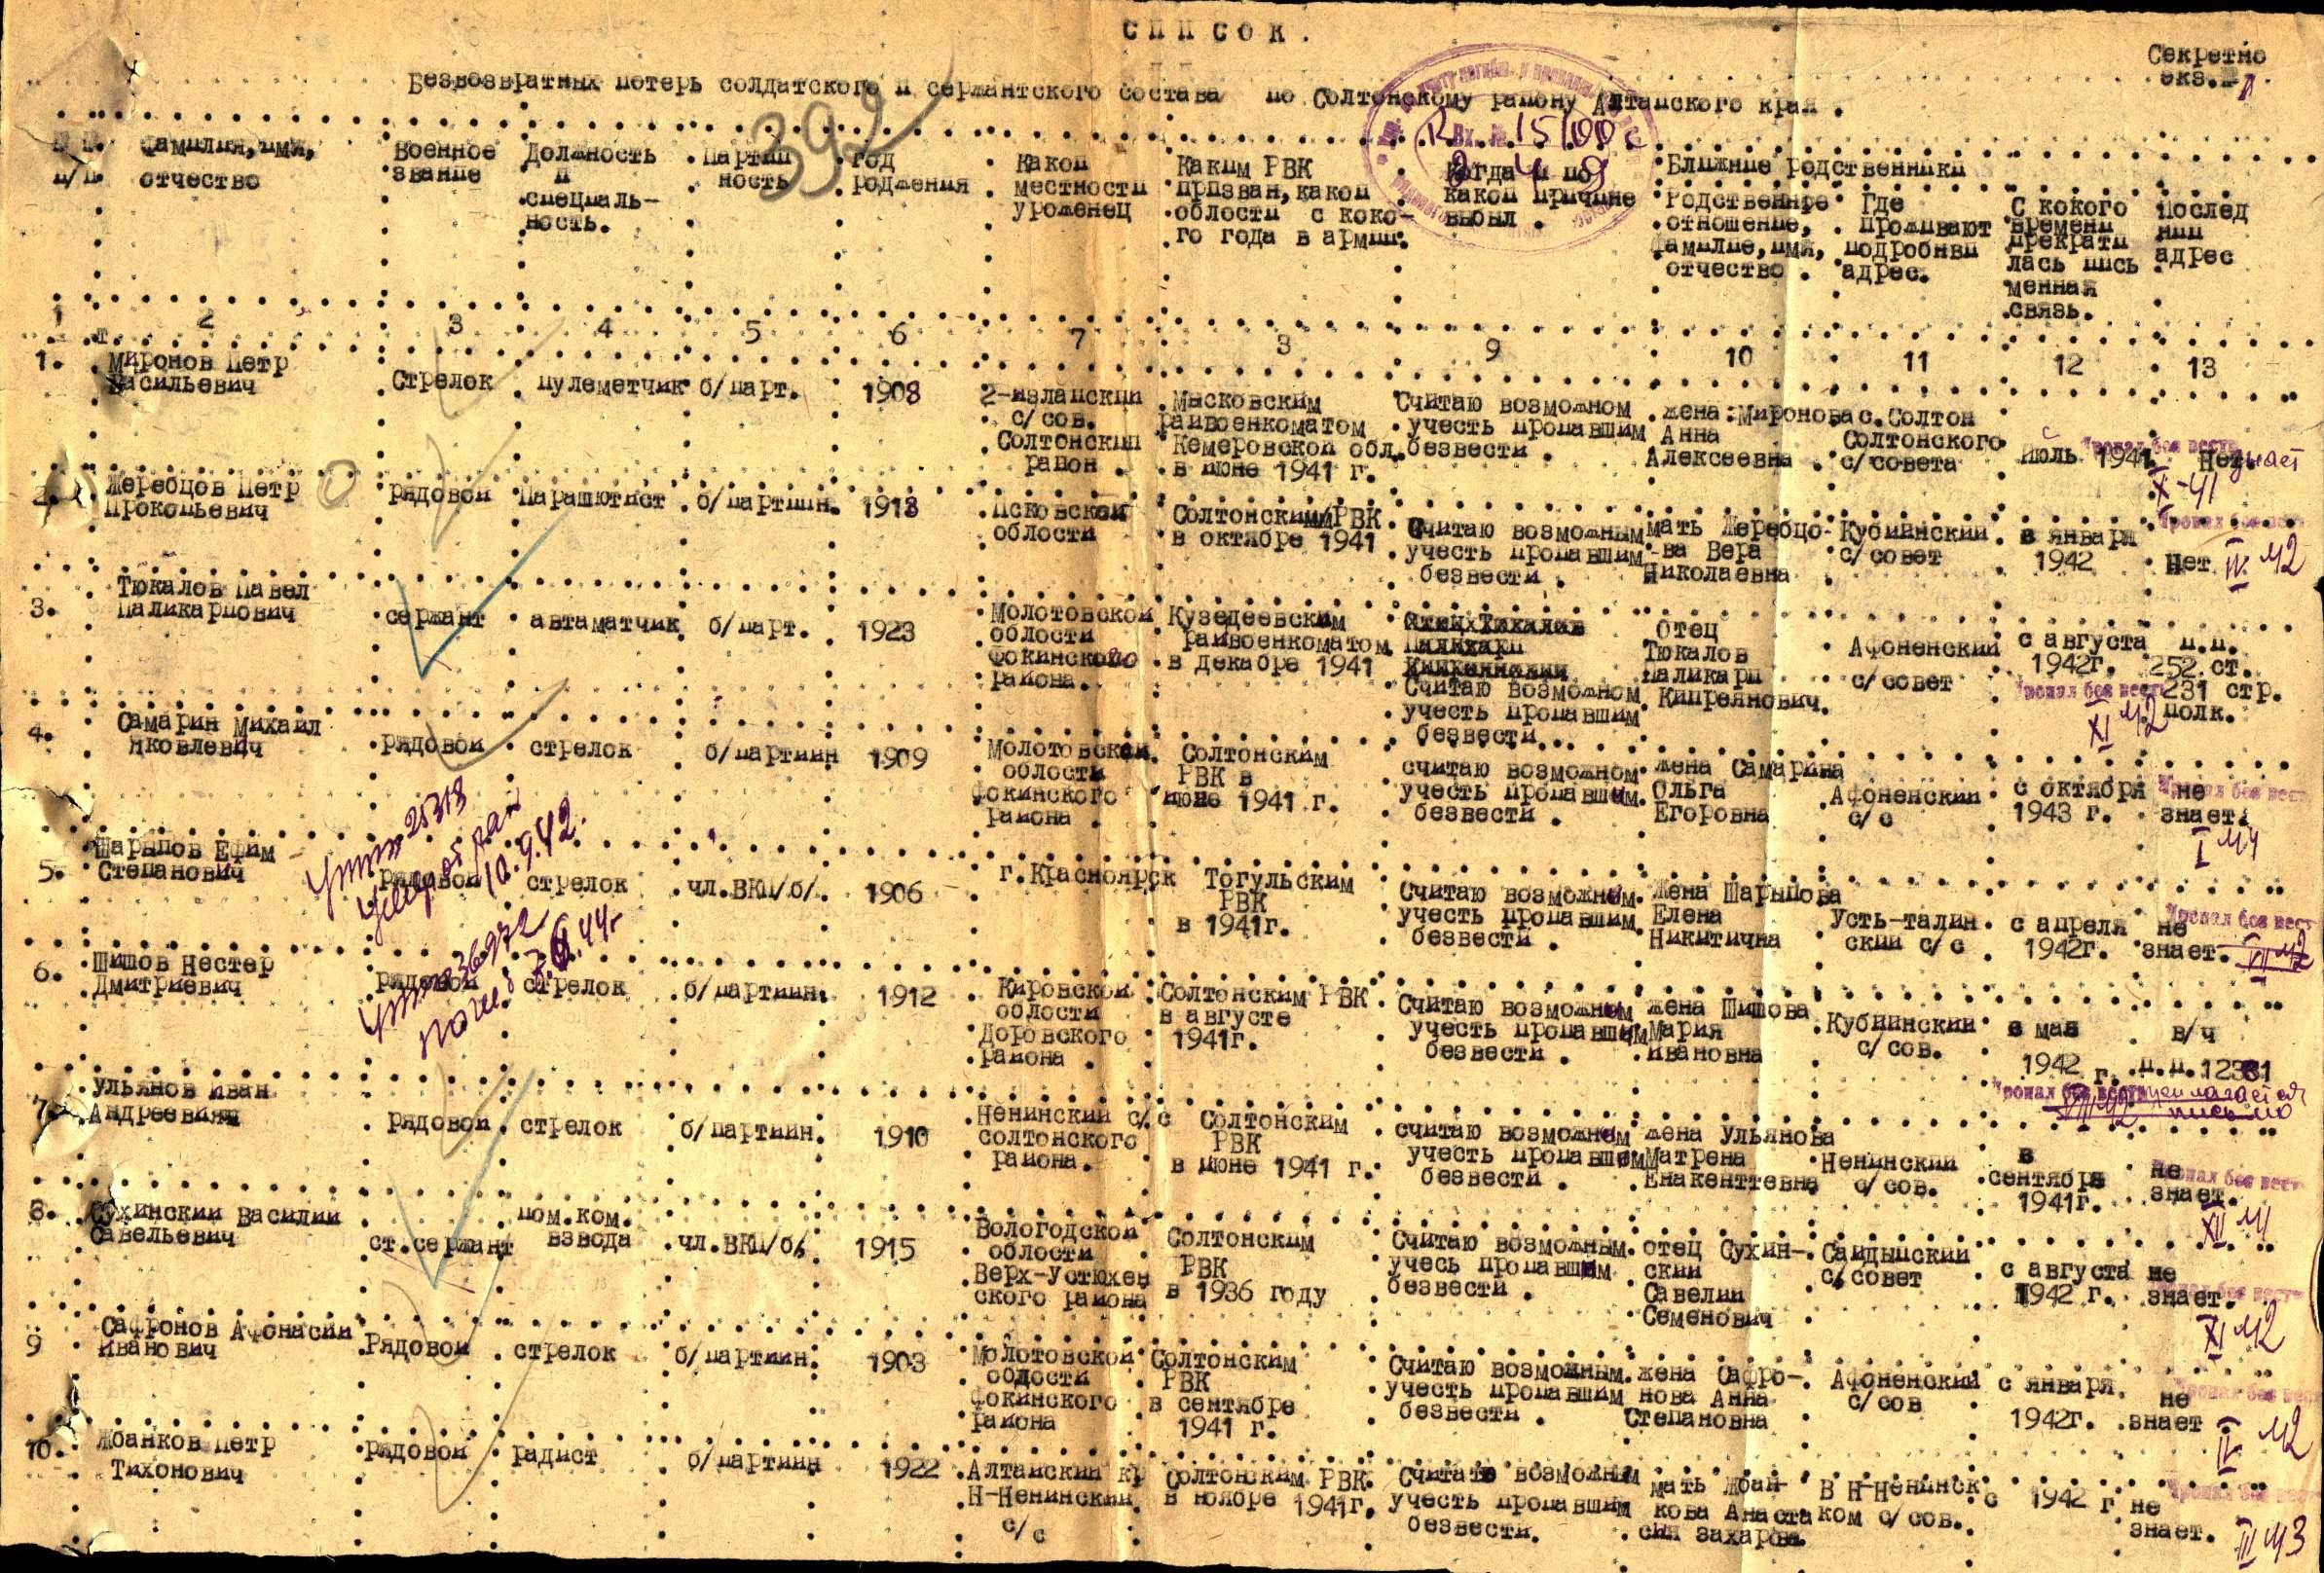 список.
Секретно
екз.
Безвозвратных потерь солдатского и сержантского состава по Солтонскому району Алтайского края.
392
Вх. № 15100с
п/п.
фамилия, имя,
отчество
Военное
звание
Должность
и
специаль-
ность.
Партий
ность
год
рождения
Какой
местности
уроженец
Каким РВК
призван, какой
облости с коко-
го года в армии.
Когда и по
какой причине
выбыл.
Ближние родственники
Родственное
отношение,
фамилие, имя,
отчество
Где
проживают
подробный
адрес.
С кокого
времени
прекрати
лась пись
менная
связь.
Послед
ний
адрес
1 2 3 4 5 6 7 8 9 10 11 12 13
1.
Миронов Петр
Васильевич
Стрелок
пулеметчик
б/парт.
1908
с/сов.
Солтонский
район.
Мысковским
райвоенкоматом
Кемеровской обл.
в июне 1941 г.
Считаю возможном
учесть пропавшим
безвести.
жена: Миронова
Анна
Алексеевна
с. Солтон
Солтонского
с/совета
Июль 1941
Не знает
Пропал без вести
X-41
2.
Жеребцов Петр
Прокопьевич
рядовой
Парашютист
б/партийн.
1918
Псковской
облости
Солтонским РВК
в октябре 1941
Считаю возможным
учесть пропавшим
безвести.
мать Жеребцо-
ва Вера
Николаевна
Кубиинский
с/совет
в января
1942
Нет
IV 42
3.
Тюкалов Павел
Паликарпович
сержант
автаматчик
б/парт.
1923
Молотовской
облости
Фокинского
района.
Кузедеевским
райвоенкоматом
в декабре 1941
Считаю возможном
учесть пропавшим
безвести
Отец
Тюкалов
Паликарп
Кипреянович.
Афоненский
с/совет
с августа
1942г.
п.п.
252 ст.
231 стр.
полк.
Пропал без вести
XI 42
4.
Самарин Михаил
Яковлевич
рядовой
стрелок
б/партийн
1909
Молотовской
облости
Фокинского
района.
Солтонским
РВК в
июне 1941 г.
считаю возможном
учесть пропавшим
безвести.
жена Самарина
Ольга
Егоровна
Афоненский
с/с
с октября
1943 г.
не
знает.
Пропал без вести
I 44
5.
Шарыпов Ефим
Степанович
рядовой
стрелок
чл.ВКП/б/.
1906
г.Красноярск
Тогульским
РВК
в 1941г.
Считаю возможном
учесть пропавшим
безвести.
Жена Шарыпова
Елена
Никитична
Усть-талин
ский с/с
с апреля
1942г.
не
знает.
Пропал без вести
25313
10.9.42.
6.
Шишов Нестер
Дмитриевич
рядовой
стрелок
б/партийн.
1912
Кировской
облости
Доровского
района.
Солтонским РВК
в августе
1941г.
Считаю возможном
учесть пропавшим
безвести.
жена Шишова
Мария
Ивановна
Кубиинский
с/сов.
в мая
1942 г.
в/ч
п.п.12381
Пропал без вести
прилагается
письмо
36972
7.
Ульянов Иван
Андреевич
рядовой
стрелок
б/партийн.
1910
Ненинский с/с
солтонского
района.
Солтонским
РВК
в июне 1941 г.
считаю возможном
учесть пропавшим
безвести.
жена Ульянова
Матрена
Енакенттевна
Ненинский
с/сов.
в
сентября
1941г.
не
знает.
Пропал без вести
XII 41
8.
Сухинский Василий
Савельевич
ст.сержант
пом.ком.
взвода
чл.ВКП/б/.
1915
Вологодской
облости
Верх-Устюжен
ского района
Солтонским
РВК
в 1936 году
Считаю возможным
учесь пропавшим
безвести.
отец Сухин-
ский
Савелий
Семенович
Сайдыпский
с/совет
с августа
1942 г.
не
знает.
XI 42
9
Сафронов Афонасий
Иванович
Рядовой
стрелок
б/партийн.
1903
Молотовской
обдости
Фокинского
района
Солтонским
РВК
в сентябре
1941 г.
Считаю возможным
учесть пропавшим
безвести.
жена Сафро-
нова Анна
Степановна
Афоненский
с/сов
с января
1942г.
не
знает
IV 42
10.
Жбанков Петр
Тихонович
рядовой
радист
б/партийн
1922
Алтайский кр
Н-Ненинский
с/с
Солтонским РВК.
в ноябре 1941г.
Считаю возможным
учесть пропавшим
безвести.
мать Жбан-
кова Анаста
сия захарова
В Н-Ненинск
ком с/сов.
с 1942 г
не
знает.
III 43